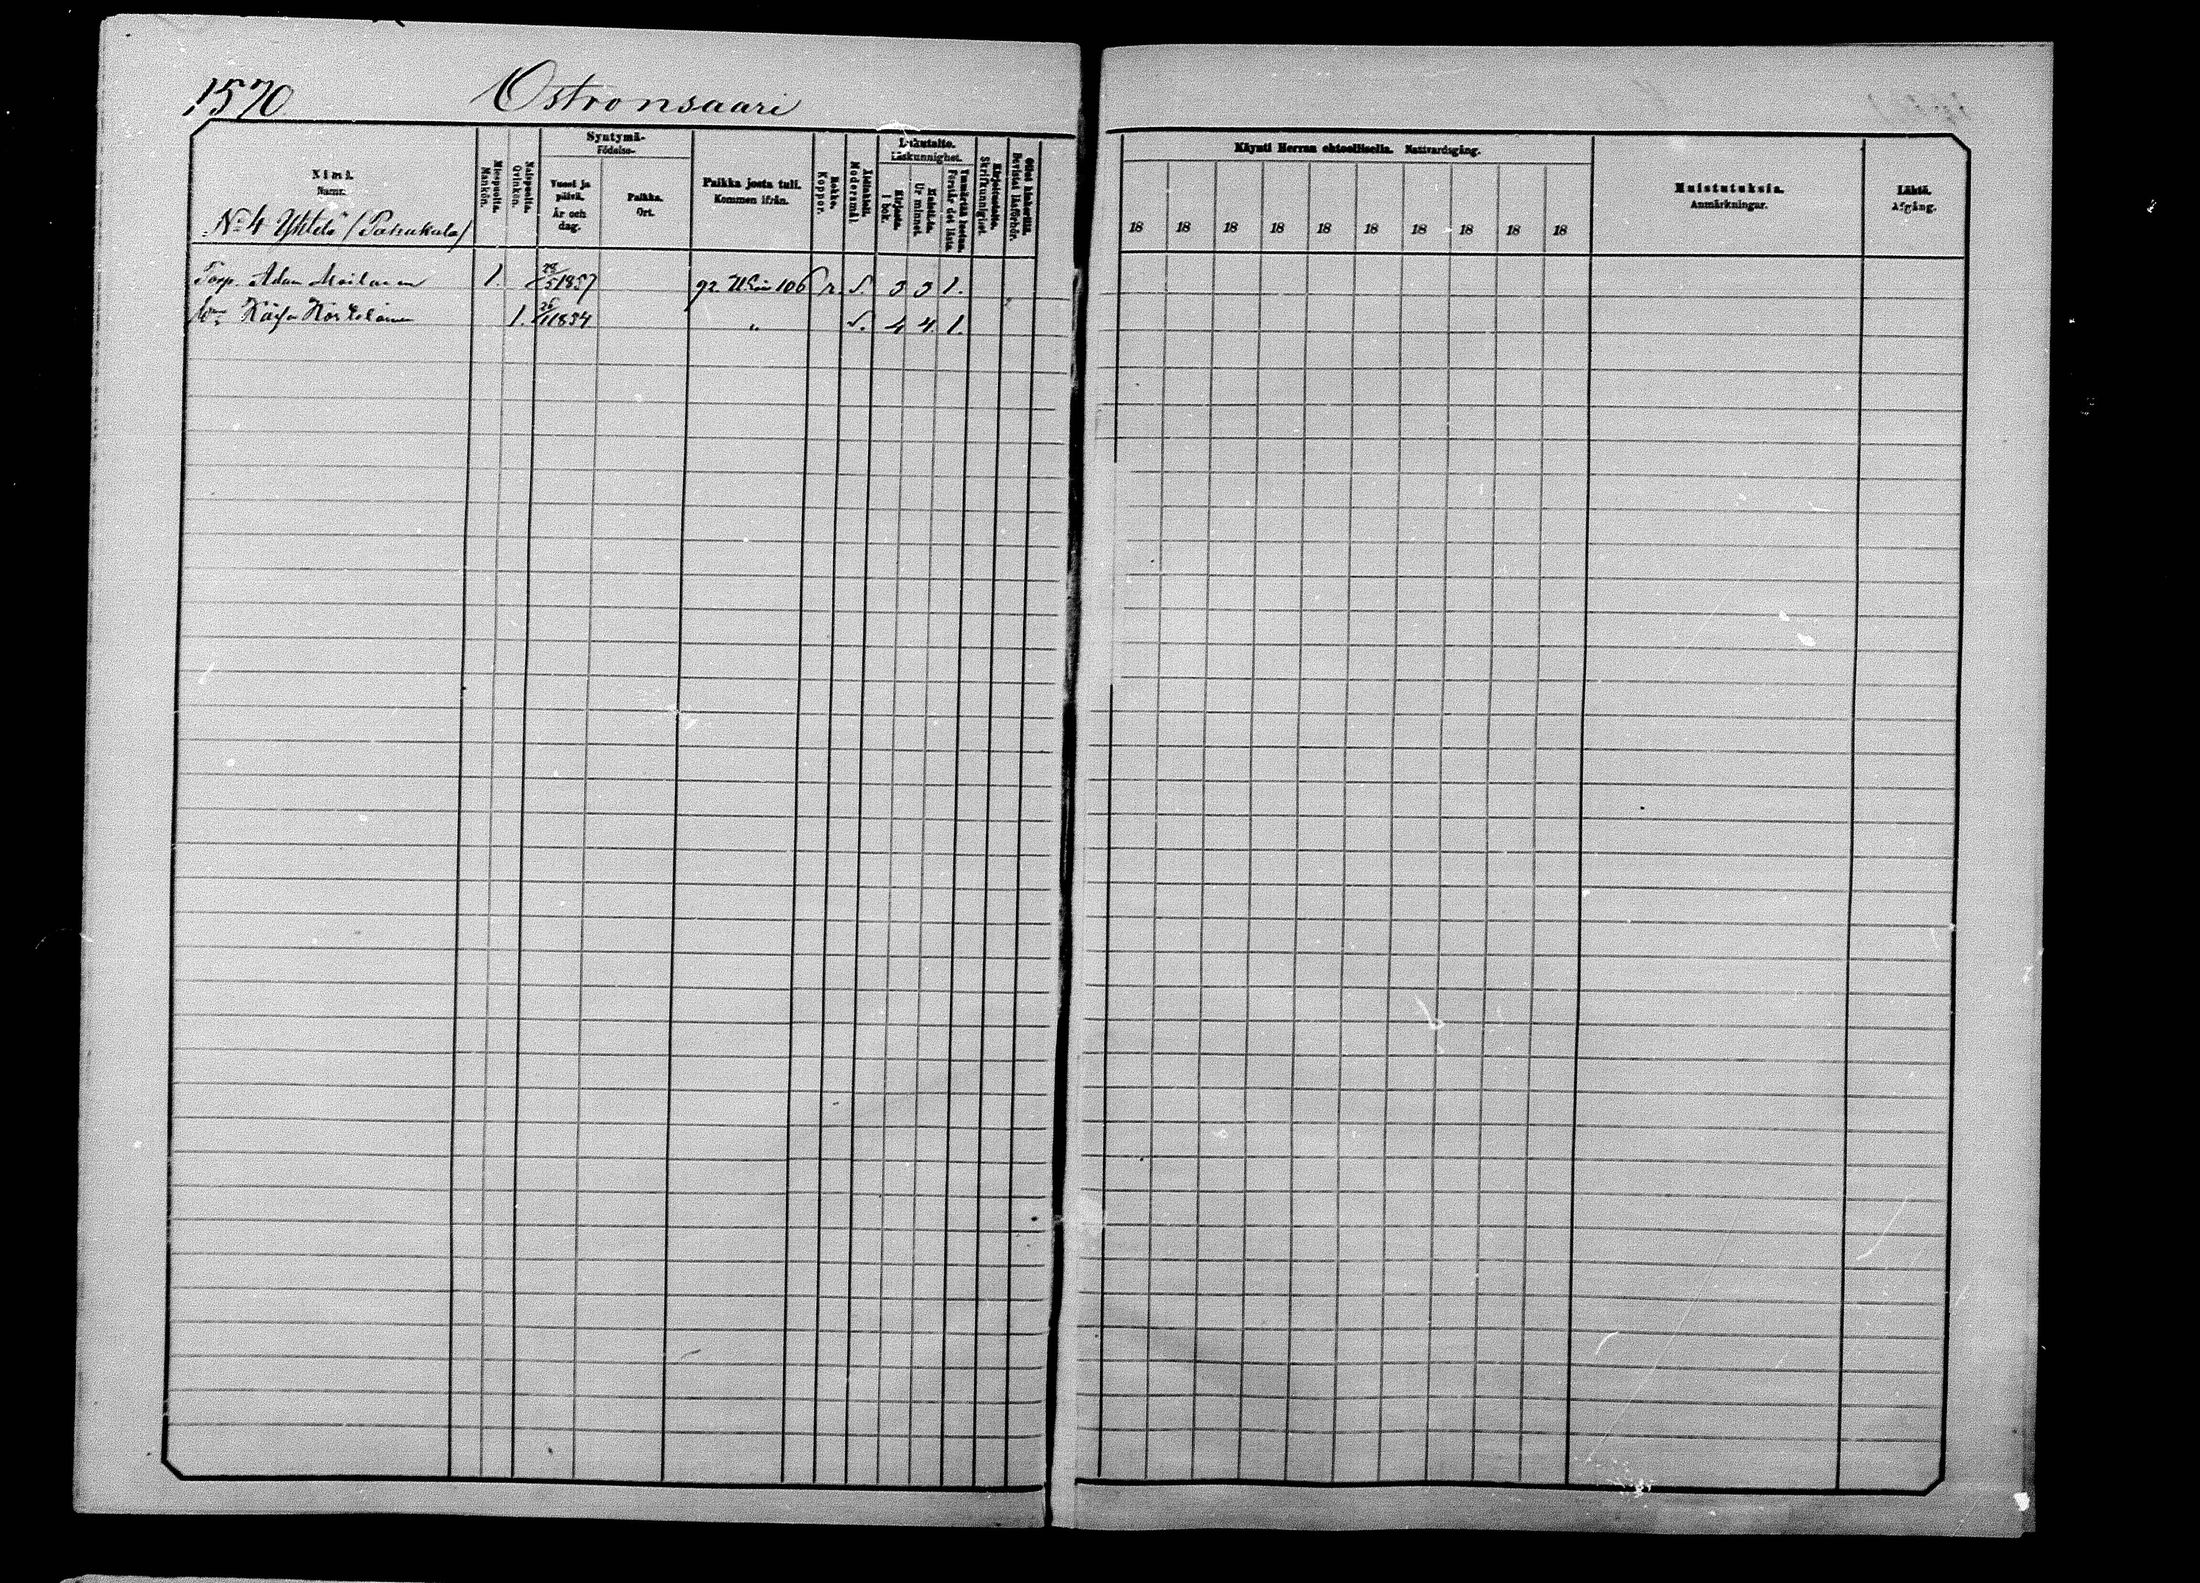 1570. Ostronsaari
Syntymä- Födelse-
Lukutaito. Läskunnighet.
Käynti Herran ehtoollisella. Nattvardsgång.
Nimi. Namn.
Miespuolia. Mankön.
Naispuolia. Qvinkön.
Vuosi ja päivä. År och dag.
Paikka. Ort.
Paikka josta tuli. Kommen ifrån.
Rokko. Koppor.
Äidinkieli. Modersmål.
Kirjasta. I bok.
Ulkoa. Ur minnet.
Ymmärtää luetun. Förstår det lästa.
Kirjoitustaito. Skrifkunnighet.
Ollut lukusilla. Bevistat läsförhör.
Muistutuksia. Anmärkningar.
Lähtö. Afgång.
18 18 18 18 18 18 18 18 18 18
No 4 Yhtelö
Torp. Adam Moilanen 1. 28/5 1857 92 106 r. S. 3 3 1.
Kaisa 1. 1854 " S. 4 4. 1.